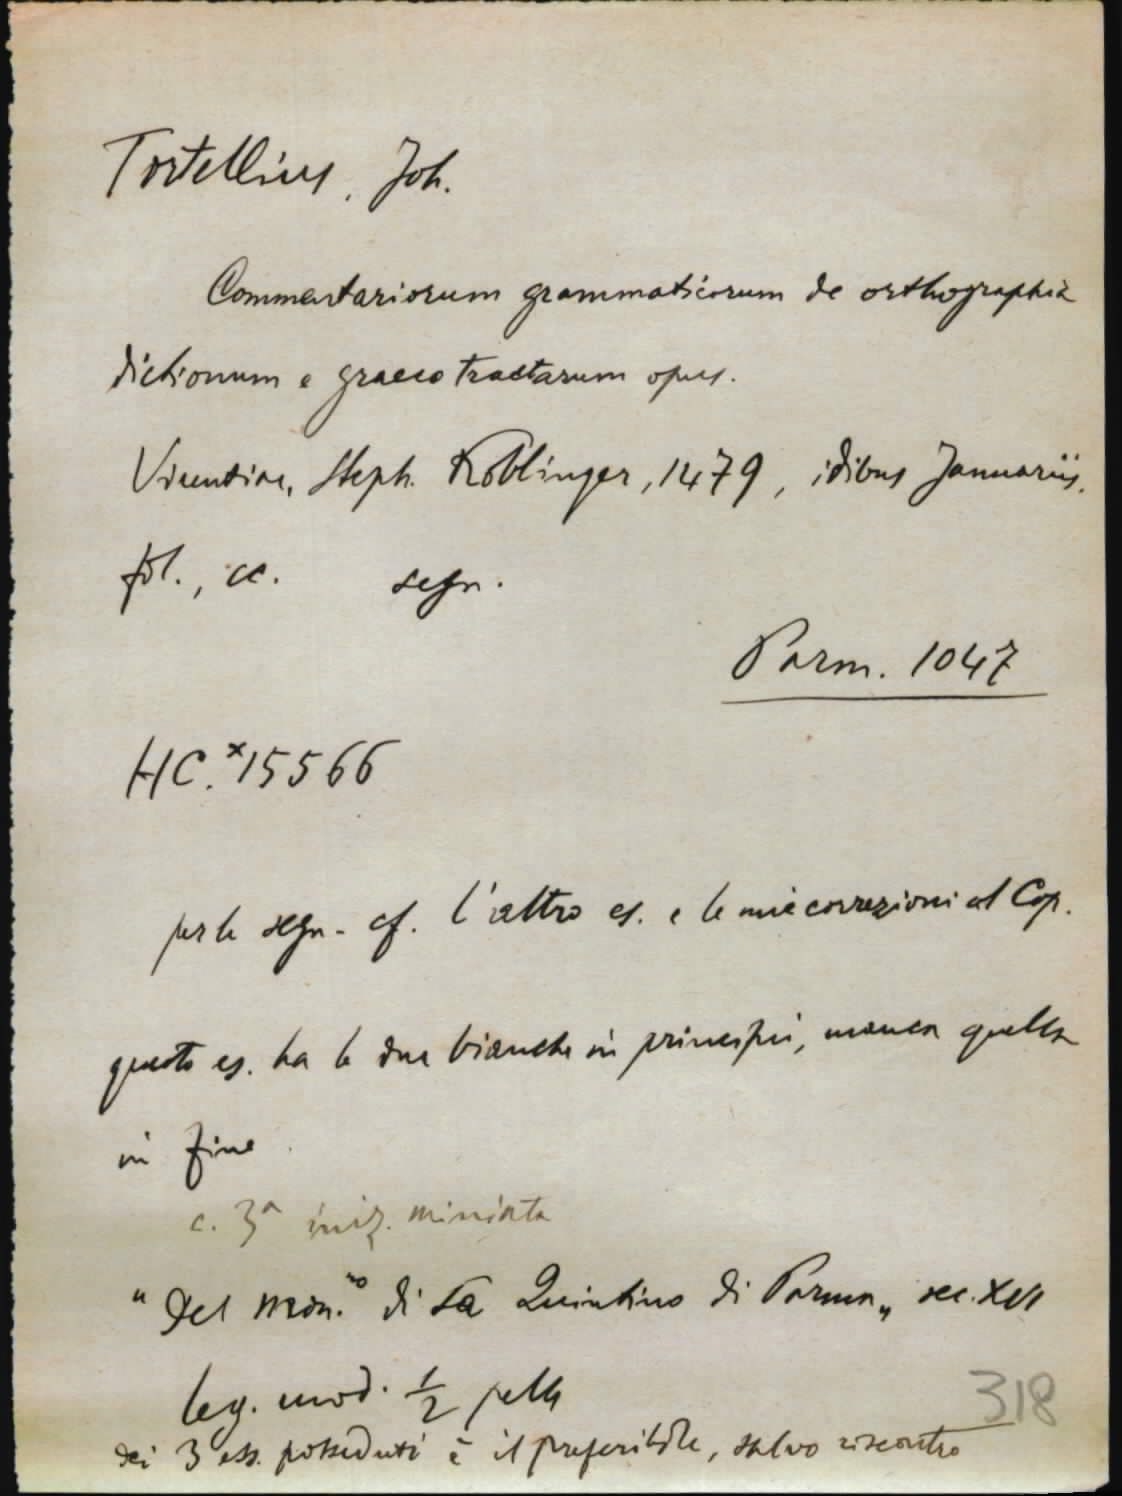 Tortellius, Joh.
Commentariorum grammaticorum de orthographia
dictionum e graeco tractarum opus.
Vicentiae, Steph. Koblinger, 1479, idibus Januariis.
fol., cc. segn.
Parm. 1047
HC.*15566
per le segn. cf. l'altro es. e le mie correzioni al Cop.
questo es. ha le due bianche in principio, manca quella
in fine
c. 3ª iniz. miniata
"Del mon.ro di Sa Quintino di Parma„ sec. XVI
leg. mod. 1/2 pelle
318
dei 3 ess. posseduti è il preferibile, salvo riscontro